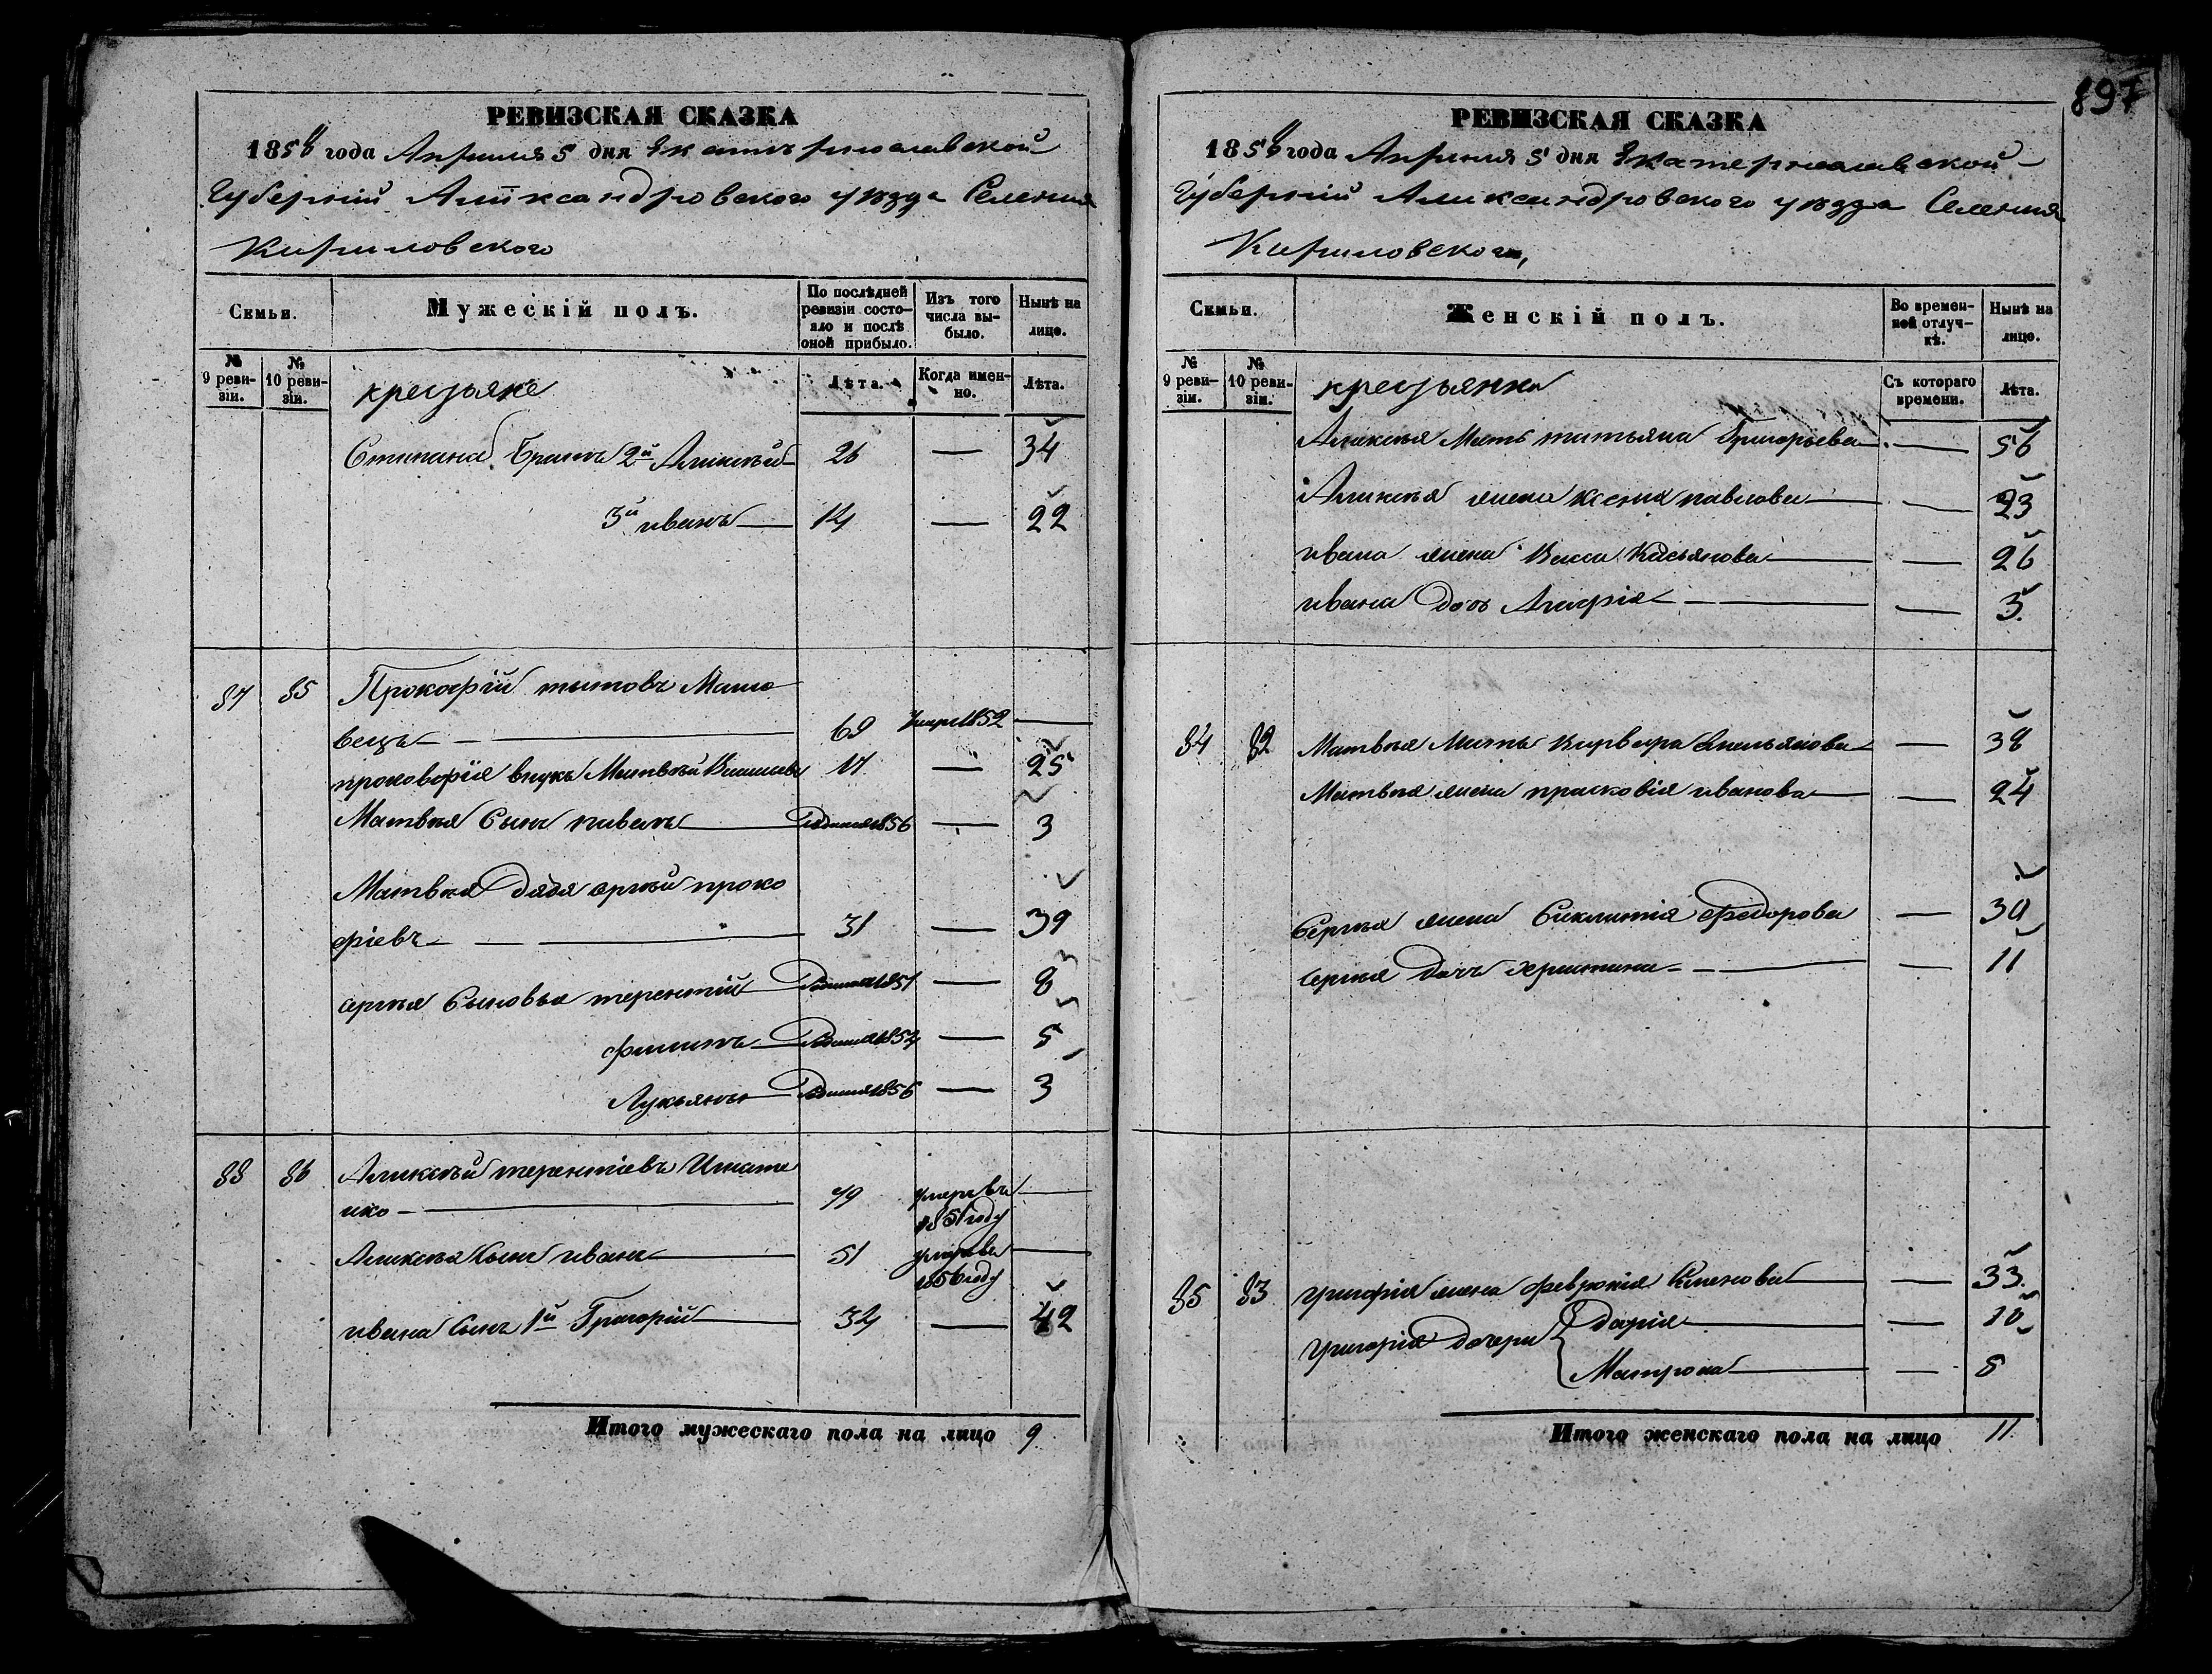 897
РЕВИЗСКАЯ СКАЗКА
1858 года Апреля 5 дня Екатеринославской
Губерніи Александровского уезда Селения
Кириловского
Семьи.
Мужескій полъ.
По послѣдней ревизіи состояло и послѣ оной прибыло.
Изъ того числа выбыло.
Нынѣ на лице.
№ 9 ревизіи.
№ 10 ревизіи.
крестьяне
Лѣта.
Когда именно.
Лѣта.
Степана Братъ 2й Алексѣй 26 — 34
3й иванъ 14 — 22
87 85 Прокофій титовъ Мато
вецъ 69 Умре 1852 —
прокофія внукъ Матвѣй 17 — 25
Матвѣя Сынъ 1856 — 3
Матвѣя дядя сергѣй проко
фіевъ 31 — 39
сергѣя Сыновья терентій 1851 — 8
филипъ — 5
Лукьянъ 1856 — 3
88 86 Алексѣй терентіевъ
79 умре въ 1851 году —
Алексѣя Сынъ иванъ 51 1856 году —
ивана Сынъ 1й Григорій 34 — 42
Итого мужескаго пола на лицо 9
РЕВИЗСКАЯ СКАЗКА
1858 года Апреля 5 дня Екатеринославской
Губерніи Александровского уезда Селения
Кириловского,
Семьи.
Женскій полъ.
Во временной отлучкѣ.
Нынѣ на лицо.
№ 9 ревизіи.
№ 10 ревизіи.
крестьянки
Съ котораго времени.
Лѣта.
Алексѣя Мать татьяна Григорьева — 56
Алексѣя жена ксения павлова — 23
ивана жена Васа Касьянова — 26
ивана дочь — 3
84 82 Матвѣя Мать варвара Емельянова — 38
Матвѣя жена прасковія иванова — 24
Сергѣя жена Федорова — 39
сергѣя дочь христина — 11
85 83 григорія жена февронія — 33
григорія дочери дарія — 10
Матрона — 5
Итого женскаго пола на лицо 11